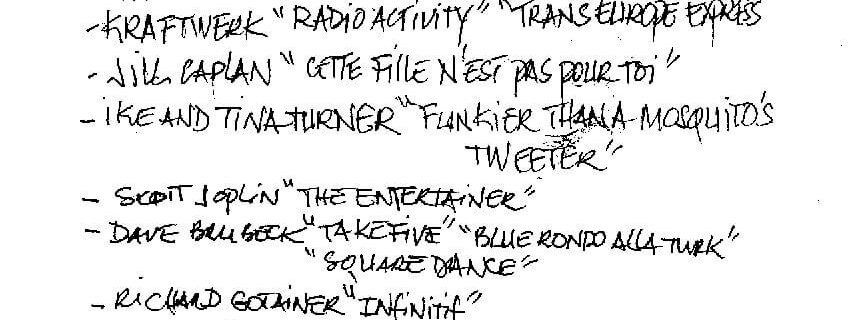 -KRAFTWERK "RADIO ACTIVITY" "TRANS EUROPE EXPRESS
- JILL CAPLAN "CETTE FILLE N'EST PAS POUR TOI"
- IKE AND TINA TURNER "FUNKIER THAN A MOSQUITO'S
TWEETER"
- SCOTT JOPLIN "THE ENTERTAINER"
- DAVE BRUBECK "TAKE FIVE" "BLUE RONDO ALLA TURK"
"SQUARE DANCE"
- RICHARD GOTAINER "INFINITIF"